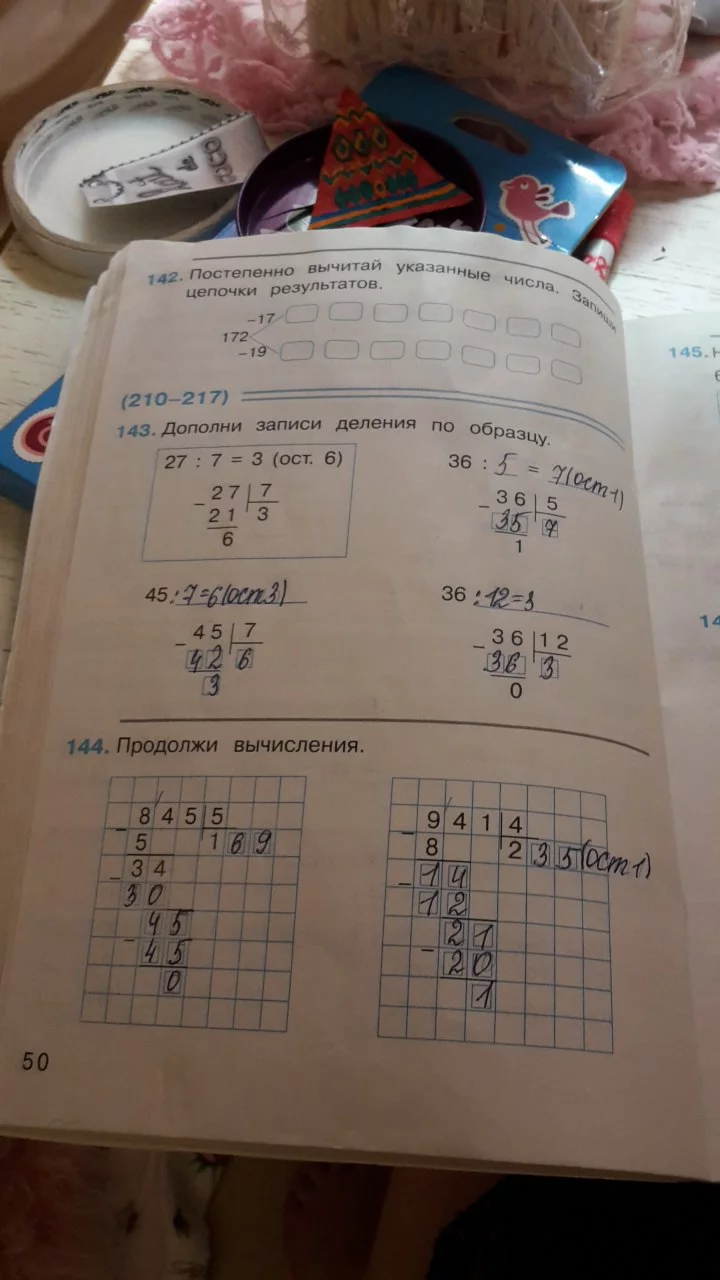 142. Постепенно вычитай указанные числа. Запиши
цепочки результатов.
-17
172
-19
(210–217)
143. Дополни записи деления по образцу.
27 : 7 = 3 (ост. 6)
36 : 5 = 7(ост1)
- 27 | 7
21 3
6
- 36 | 5
35 7
1
45:7=6(ост3)
36 :12=3
- 45 | 7
42 6
3
- 36 | 12
36 3
0
144. Продолжи вычисления.
- 845 | 5
5 169
- 34
30
- 45
45
0
- 941 | 4
8 235(ост1)
- 14
12
- 21
20
1
50
145. Н
6
14